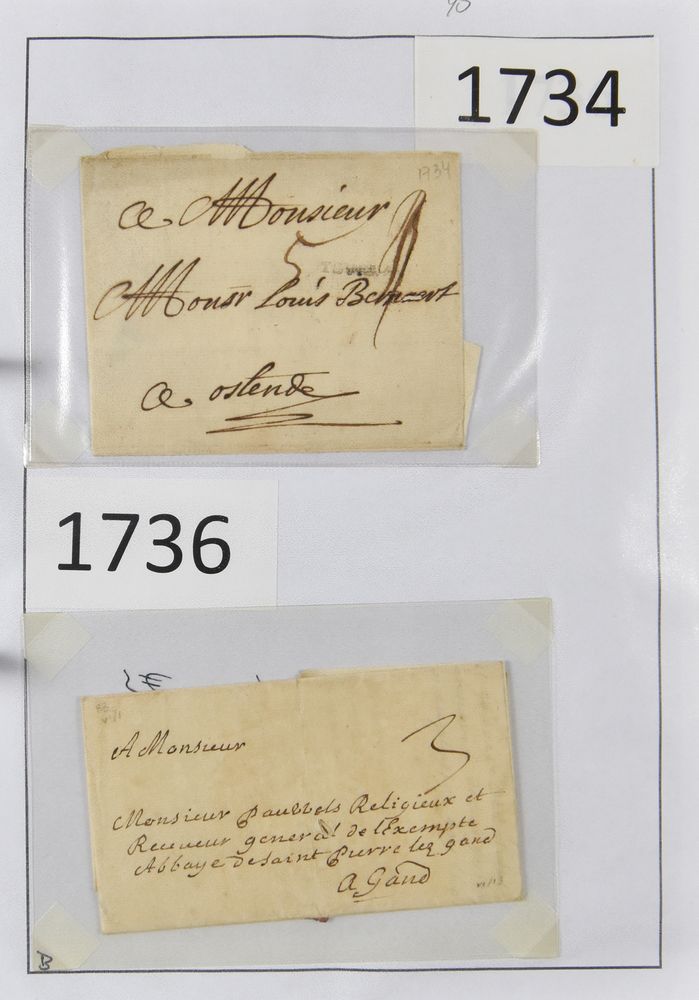 1734
1734
a Monsieur
5
Monsr Louis Bernaert
a ostende
1736
A Monsieur
3
Monsieur pauwels Religieux et
Receveur general de l'Exempte
Abbaye de saint pierre lez gand
A Gand
B